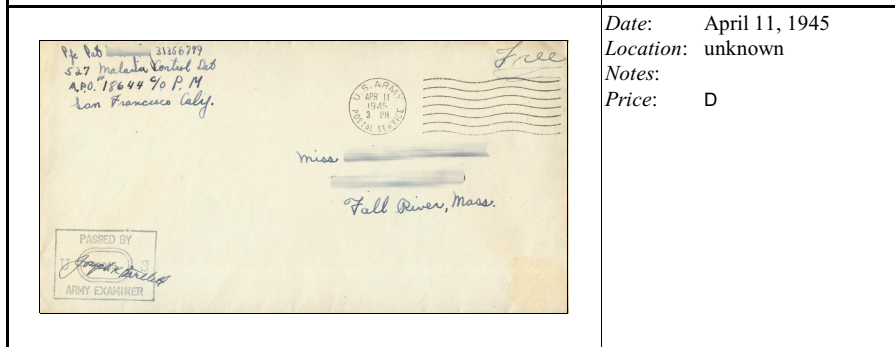 Pfc Pat 31356799
527 Malaria Control Det
A.P.O. 18644 c/o P. M
San Francisco Caly.
Free
U.S. ARMY
APR 11
1945
3 PM
POSTAL SERVICE
Miss
Fall River, Mass.
PASSED BY
ARMY EXAMINER
Date: April 11, 1945
Location: unknown
Notes:
Price: D